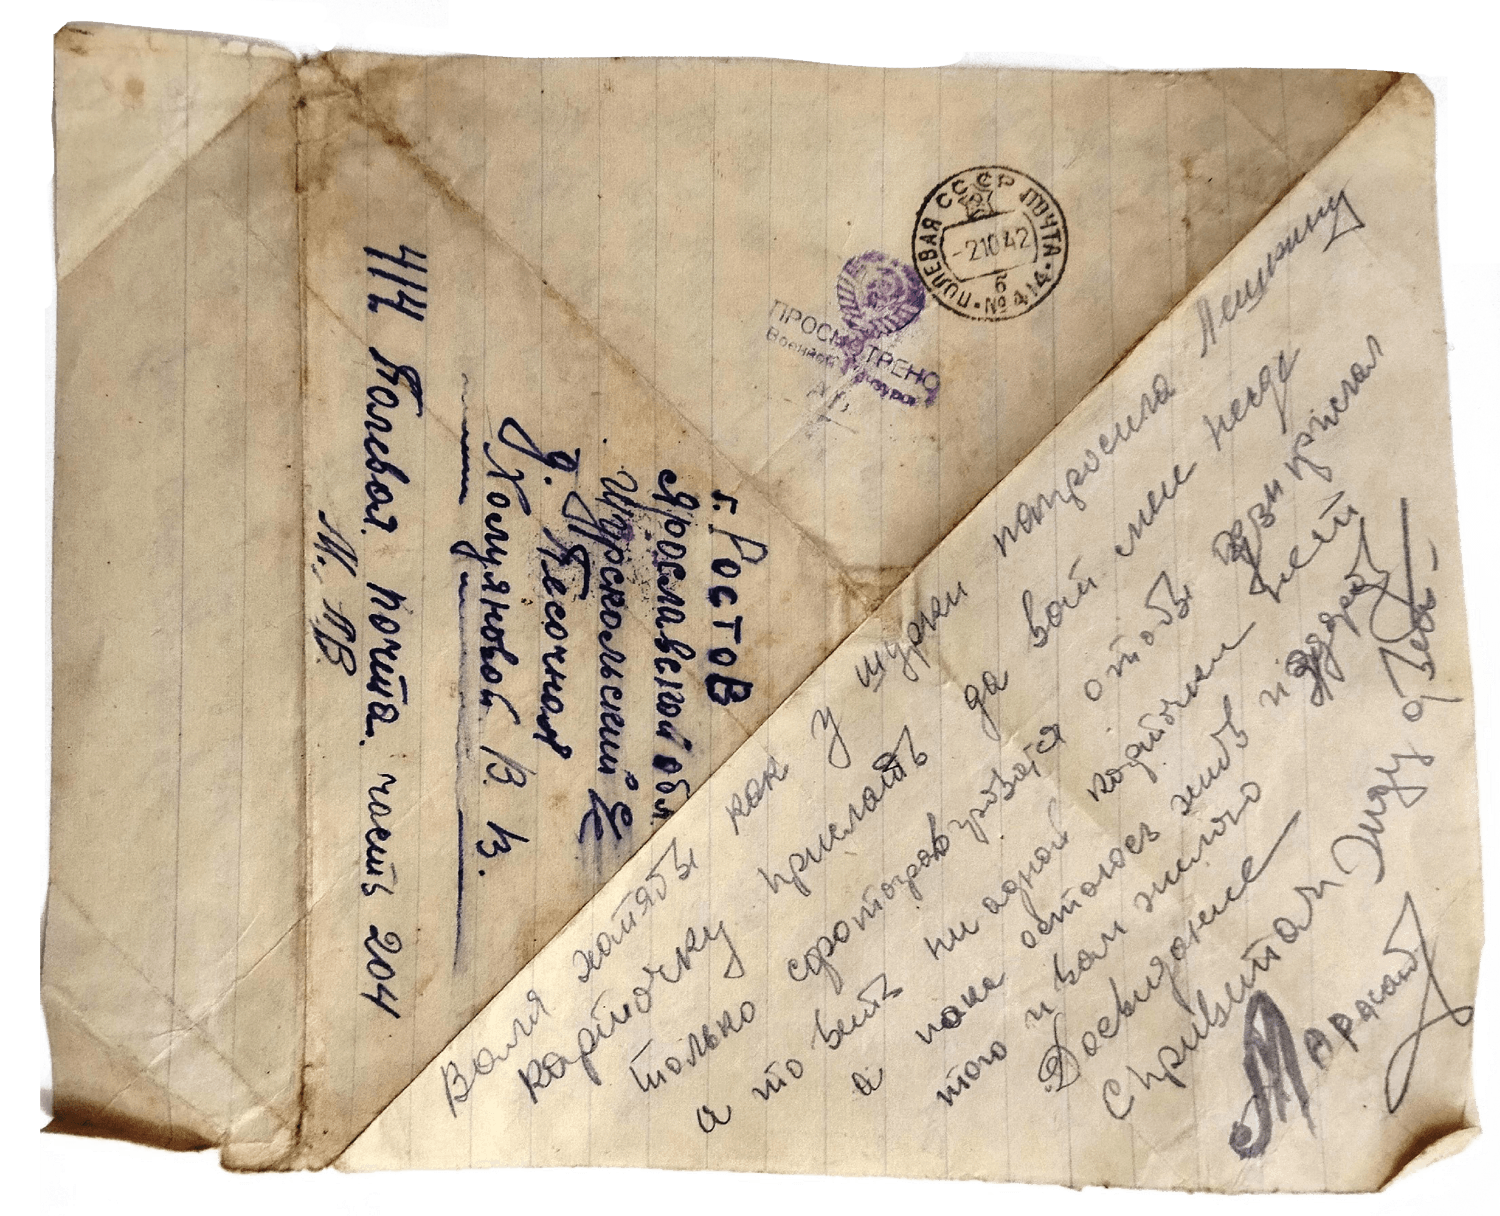 ПОЛЕВАЯ СССР ПОЧТА
-2 10 42
б
№ 414
ПРОСМОТРЕНО
Военной
г. Ростов
Ярославской обл
д. Песочная
Холуяновой В. В.
414 Полевая почта. часть 204
М. В
Валя хатябы как у шурки попросила
карточку прислать да вой мне негде
только сфотографироватся отобы прислал
а то веть ни одной карточки нет
а пока осталось жив и здоров
того и вам желаю
Досвидание
С приветом Жду ответ